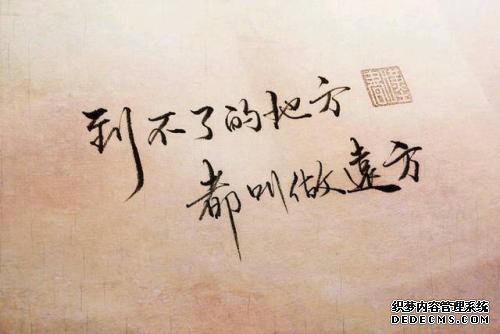 到不了的地方
都叫做遠方
织梦内容管理系统
DEDECMS.COM